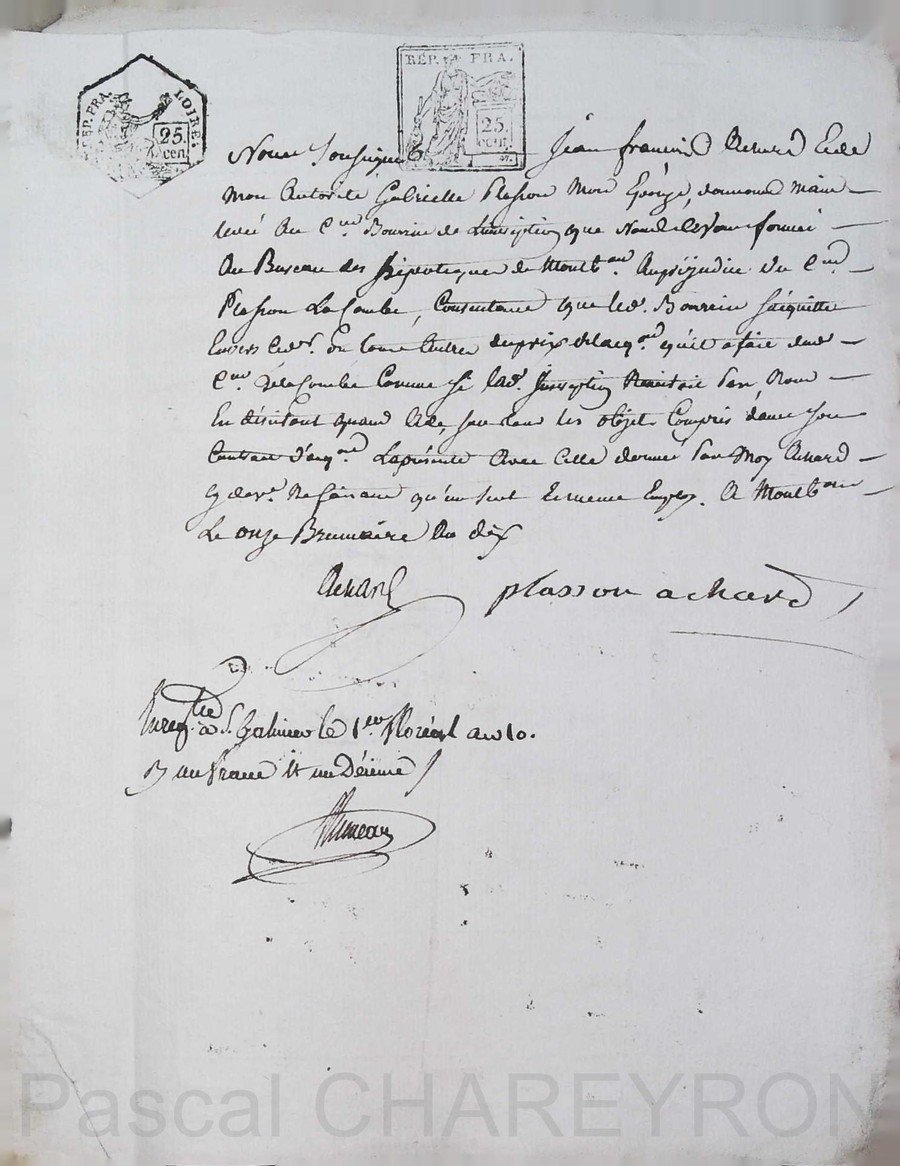 RÉP. FRA. LOIRE.
25 cen.
RÉP. FRA.
25 cen.
Nous soussignés Jean françois Achard Et de
Mon Autorité Gabrielle Plasson Mon Epouse, donnons main
levée Au C.en Bourrin de L'inscription que Nous avons formée
Au Bureau des hipoteques de Montb.on Au préjudice du C.en
Plasson La Combe, Consentons que led. Bourrin s'acquitte
Envers led. du prix de l'acq.on qu'il a fait dud.
C.en De la Combe Comme si lad. Inscription N'existait pas, Nous
En désistant quand A ce, sur tous les objets Compris dans son
Contrat d'acq.on La présente Avec Celle donnée par Moy Achard
cy dev.t Ne faisant qu'un seul Et même Employ. A Montb.on
Le onze Brumaire An dix
Achard
plasson achard
Enreg.tré à S. Galmier le 1.er floréal an 10.
R un franc et un Décime
Pascal CHAREYRON